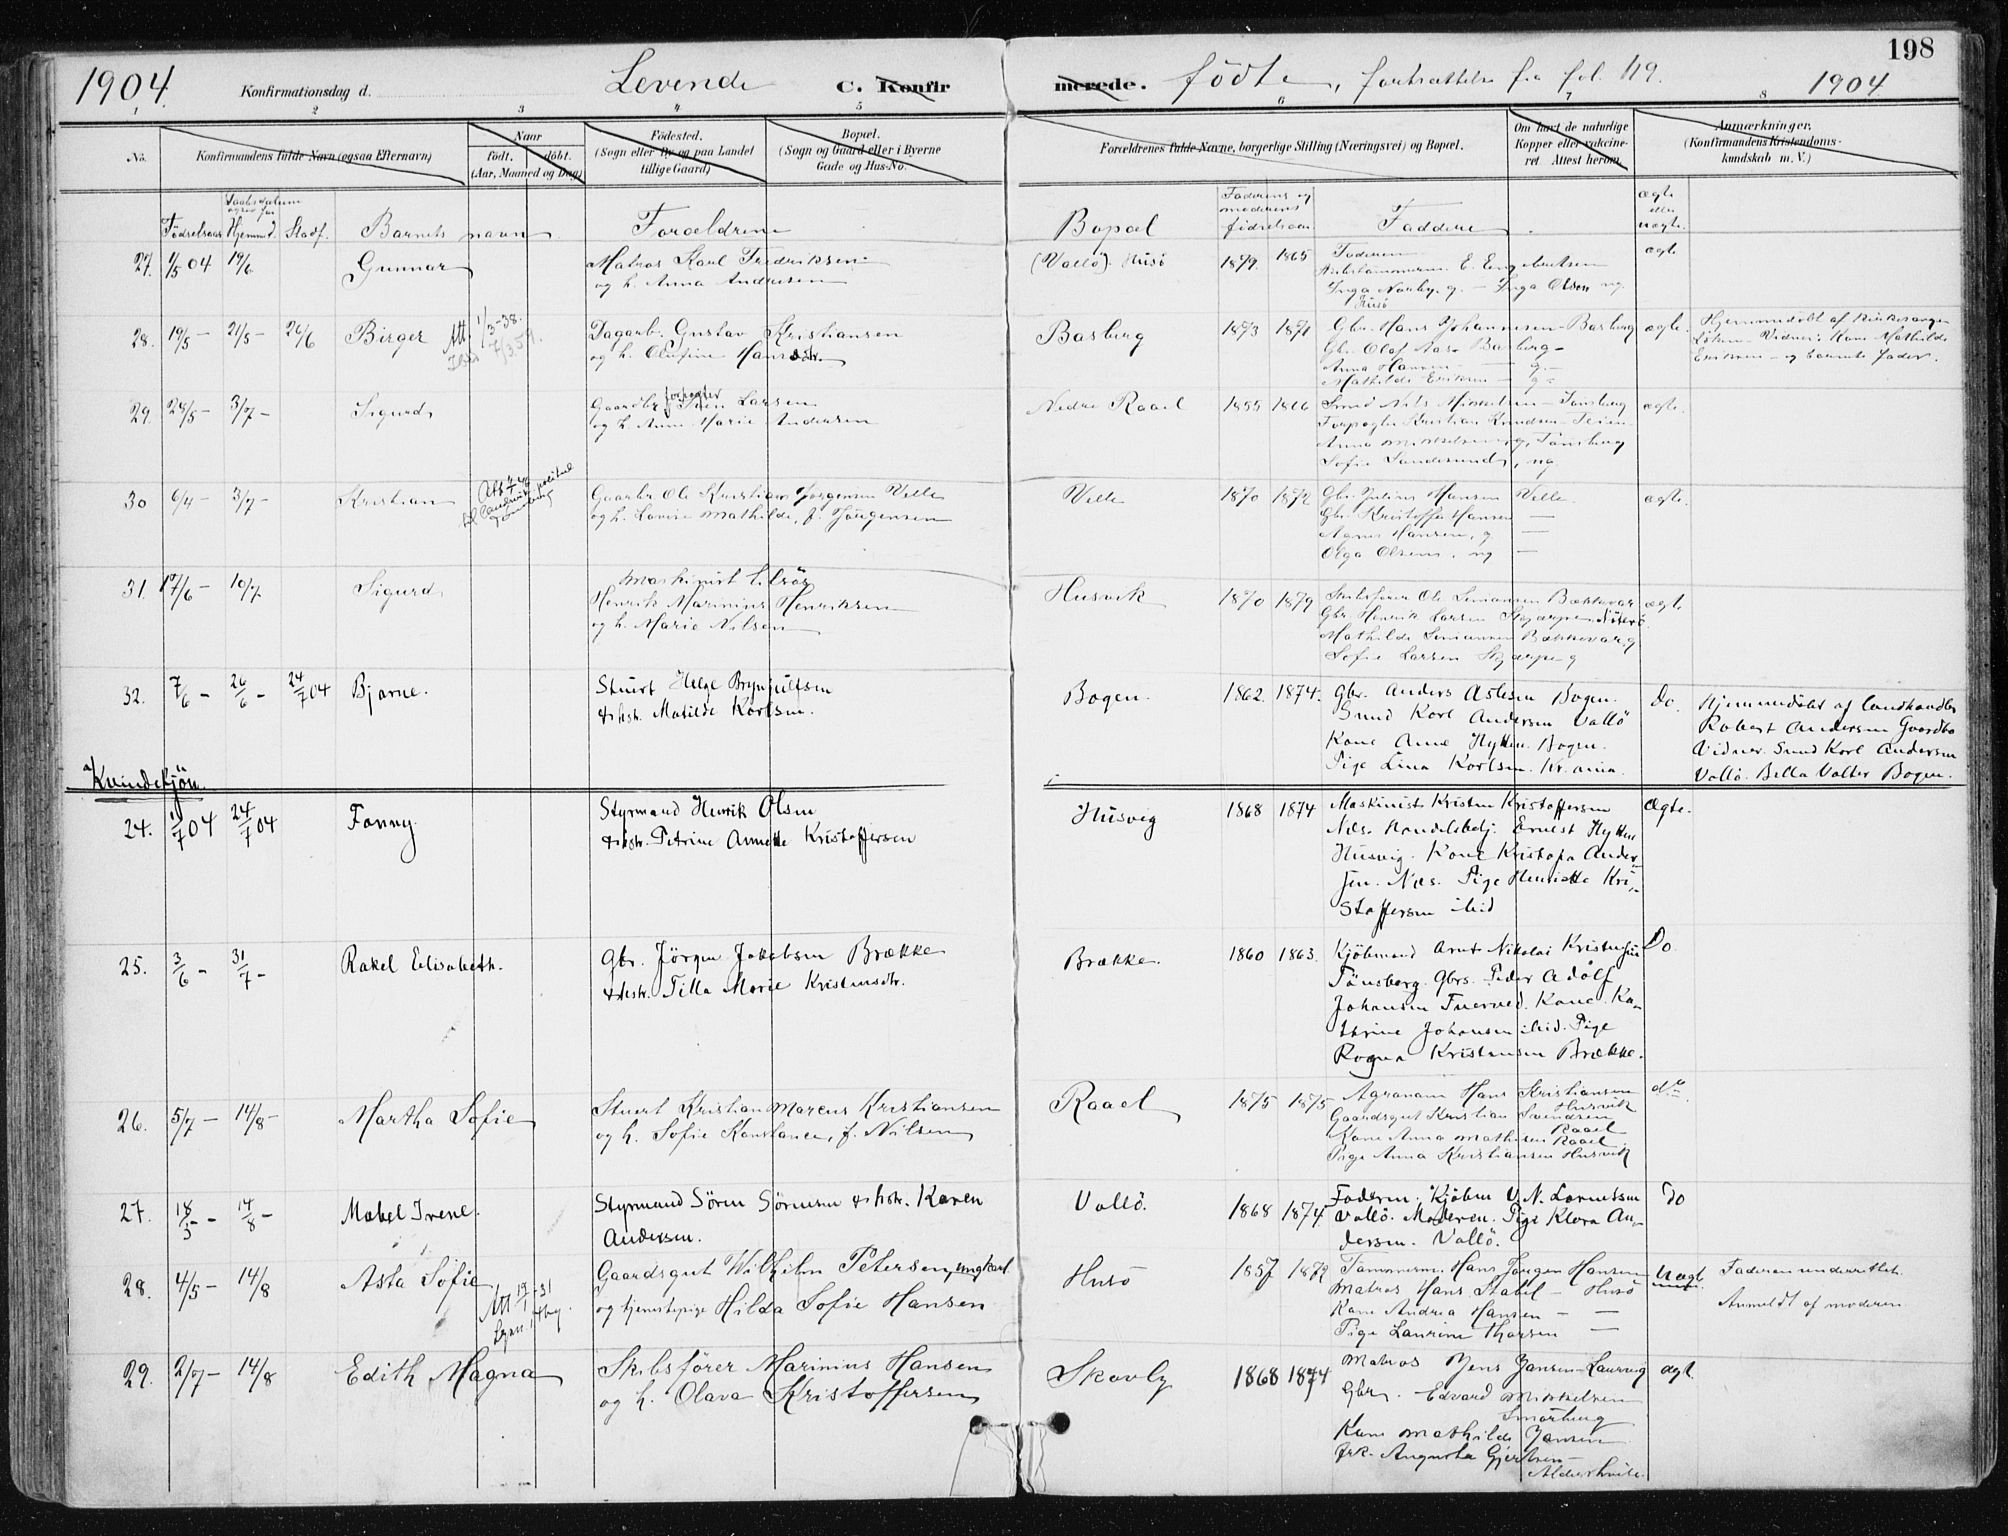 198
1904 Konfirmationsdag d. Levende C. Konfir merede. födte, fortsættelse fra fol. 119. 1904
1 2 3 4 5 6 7 8
No. Konfirmandens fulde Navn (ogsaa Efternavn) Naar Fødested. Bopæl. Forældrenes fulde Navne, borgerlige Stilling (Næringsvei) og Bopæl. Om havt de naturlige Anmærkninger.
født. døbt. (Sogn eller By og paa Landet (Sogn og Gaard eller i Byerne Kopper eller vakcine- (Konfirmandens Kristendoms-
(Aar, Maaned og Dag) tillige Gaard) Gade og Hus-No. ret Attest herom. kundskab m. V.)
Fødselsaar Hjemmed. Stadf. Barnets navn Forældrene Bopæl Faderens og moderens fødselsaar Faddere ægte eller uægte.
27. 1/5 04 19/6 Gunnar Matros Karl Fredriksen (Vallö) Husö 1879. 1865 Faderen ægte
og h. Anna Andresen
Inga Norby g. – Inga Olsen ug.
Husö
28. 19/5 – 21/5 – 26/6 Birger Att. 1/3-38. Dagarb. Gustav Kristiansen Basberg 1873 1871 Gbr. Hans Johannesen Basberg ægte. Hjemmedøbt af kirkesanger
og h. Olufine Hansdtr. Gbr. Olaf Aas Basberg – Vidner: Kone Mathilde
Anna Hansen – g. – Eriksen – og barnets fader.
Mathilde Eriksen – g –
29. 28/5 – 3/7 – Sigurd Gaardbr forpagter Sven Larsen Nedre Raael 1855 1866 Smed Nils Mikkelsen – Tönsberg ægte.
og h. Anne Marie Andersen Forpagter Kristian Knudsen Teien
Anna Mikkelsen g, Tönsberg
Sofie Sandesund, ug.
30 6/4 – 3/7 – Kristian Gaarbr. Ole Kristian Jørgensen Velle Velle 1870 1872 Gbr. Julius Hansen Velle. ægte.
og h. Lovise Mathilde, f. Jörgensen Gbr. Kristoffer Hansen —
Agnes Hansen, g —
Olga Olsen, ug —
31. 17/6 – 10/7 Sigurd Maskinist tilsös Husvik 1870 1879 Skibsfører Ole Simonsen Bækkevar ægte
Henrik Marinius Henriksen Gbr. Henrik Larsen Skjærpe Nöterö.
og h. Marie Nilsen Mathilde Simonsen Bækkevar g
Sofie Larsen Skjærpe g
32. 7/6 – 26/6 – 24/7 04 Bjarne. Stuert Helge Brynjulfsen Bogen. 1862. 1874. Gbr. Anders Aslesen Bogen. Do. Hjemmedöbt af Landhandler
& hstr. Matilde Karlsen. Smed Karl Andersen Vallö Robert Andersen Gaardbo
Kone Anne Hytten. Bogen. Vidner. Smed Karl Andersen
Pige Lina Karlsen. Kr.ania. Vallö. Bella Valter Bogen.
"Kvindekjön."
24. 1/7 04 24/7 04 Fanny. Styrmand Henrik Olsen Husvig 1868 1874 Maskinist Kristen Kristoffersen Ægte.
& hstr. Petrine Annette Kristoffersen Næs. Handelsbetj. Ernest Hytten
Husvig. Kone Kristofa Ander-
sen. Næs. Pige Henriette Kri-
stoffersen ibid
25. 3/6 – 31/7 – Rakel Elisabeth. Gbr. Jörgen Jakobsen Brække Brække. 1860 1863. Kjöbmand Arnt Nikolai Kristensen Do.
& hstr. Tilla Marie Kristensdtr. Tönsberg. Gbrs. Peder Adolf
Johansen Tuerved. Kone Ka-
thrine Johansen ibid. Pige
Ragna Kristensen Brække.
26. 5/7 – 14/8 – Martha Sofie Stuert Kristian Marcus Kristiansen Raael 1875 1875 Agronom Hans Kristiansen Husvik do.
og h. Sofie Konstance, f. Nilsen Gaardsgut Kristian Svendsen Raael
Kone Anna Mathisen Raael
Pige Anna Kristiansen Husvik
27. 18/3 – 14/8 – Mabel Irene. Styrmand Sören Sörensen & hstr. Karen Vallö. 1868 1874 Faderen. Kjöbm V. N. Lorentsen Do
Andersen. Vallö. Moderen. Pige Klara An-
dersen. Vallö.
28. 4/5 – 14/8 Asta Sofie Gaardsgut Wilhelm Petersen, ungkarl Husö 1857 1872 Tömmerm. Hans Jörgen Hansen Uægt. Faderen underrettet.
Att 19/1-31 og tjenestepige Hilda Sofie Hansen Matros Hans Stabel – Husö Anmeldt af moderen
Kone Andrea Hansen — —
Pige Laurine Thorsen —
29. 2/7 – 14/8 Edith Magna Skibsförer Marinius Hansen Skovly 1868 1874 Matros Jens Jansen – Laurvig ægt.
og h. Olava Kristoffersen Gbr. Edvard Mikkelsen
Smörberg
Kone Mathilde Jansen
frk. Augusta Gjertsen –